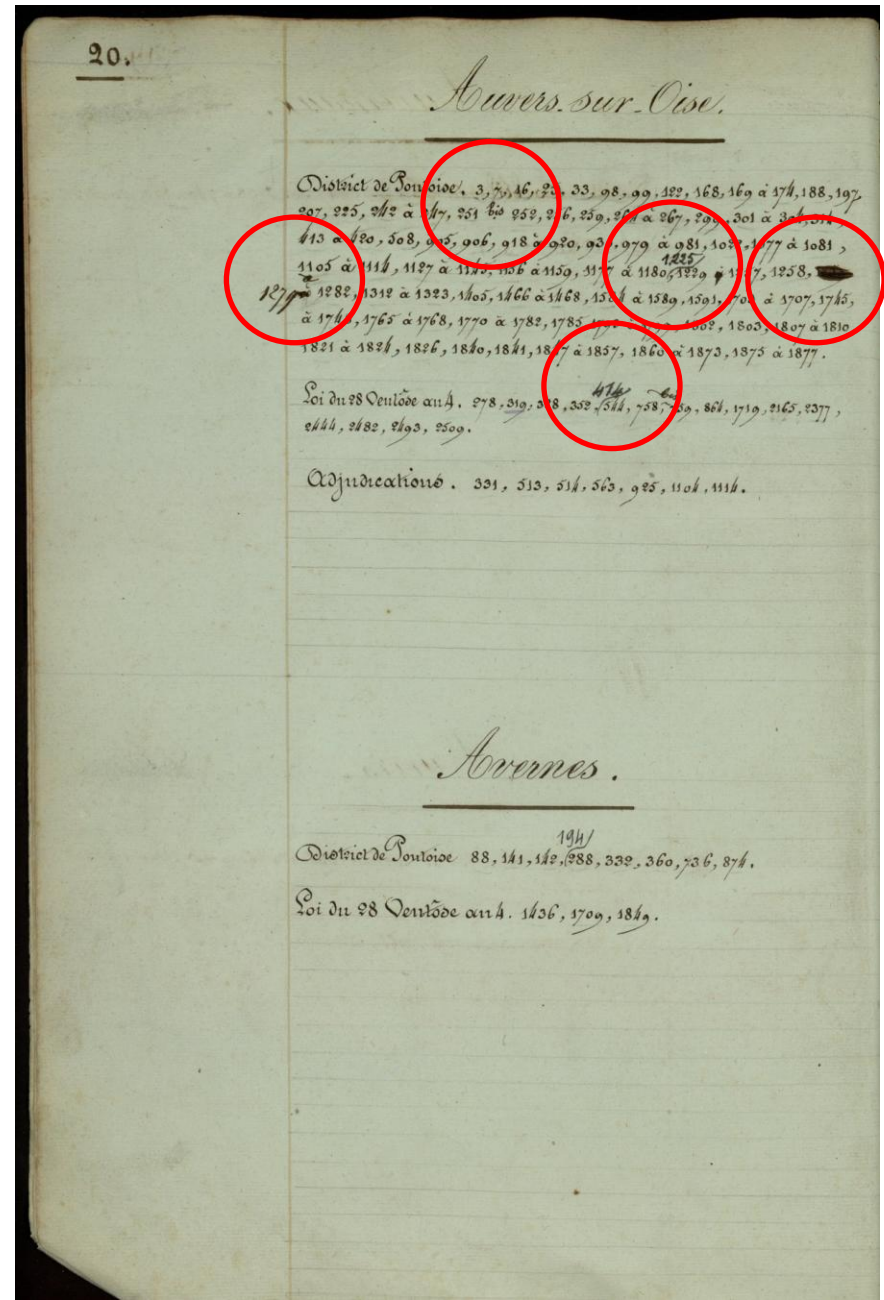 20.
Auvers-sur-Oise.
District de Pontoise. 3, 7, 16, 25. 33, 98, 99, 122, 168, 169 à 174, 188, 197,
207, 225, 242 à 247, 251 bis 252, 259, à 267, 301 à
413 à 420, 508, 905, 906, 918 à 920, 979 à 981, 1077 à 1081,
1225
1105 à 1114, 1127 à 1145, 1156 à 1159, 1177 à 1180, 1229 1258,
1279 à 1282, 1312 à 1323, 1405, 1466 à 1468, 1584 à 1589, 1591, à 1707, 1745,
à 1765 à 1768, 1770 à 1782, 1785 1802, 1803, 1807 à 1810
1821 à 1824, 1826, 1840, 1841, 1847 à 1857, 1860 à 1873, 1875 à 1877.
474
Loi du 28 Ventôse an 4. 278, 319, 328, 352, 544, 758, 759, 864, 1719, 2165, 2377,
2444, 2482, 2493, 2509.
Adjudications. 331, 513, 514, 563, 925, 1104, 1114.
Avernes.
194/
District de Pontoise 88, 141, 142, 288, 332, 360, 736, 874.
Loi du 28 Ventôse an 4. 1436, 1709, 1849.